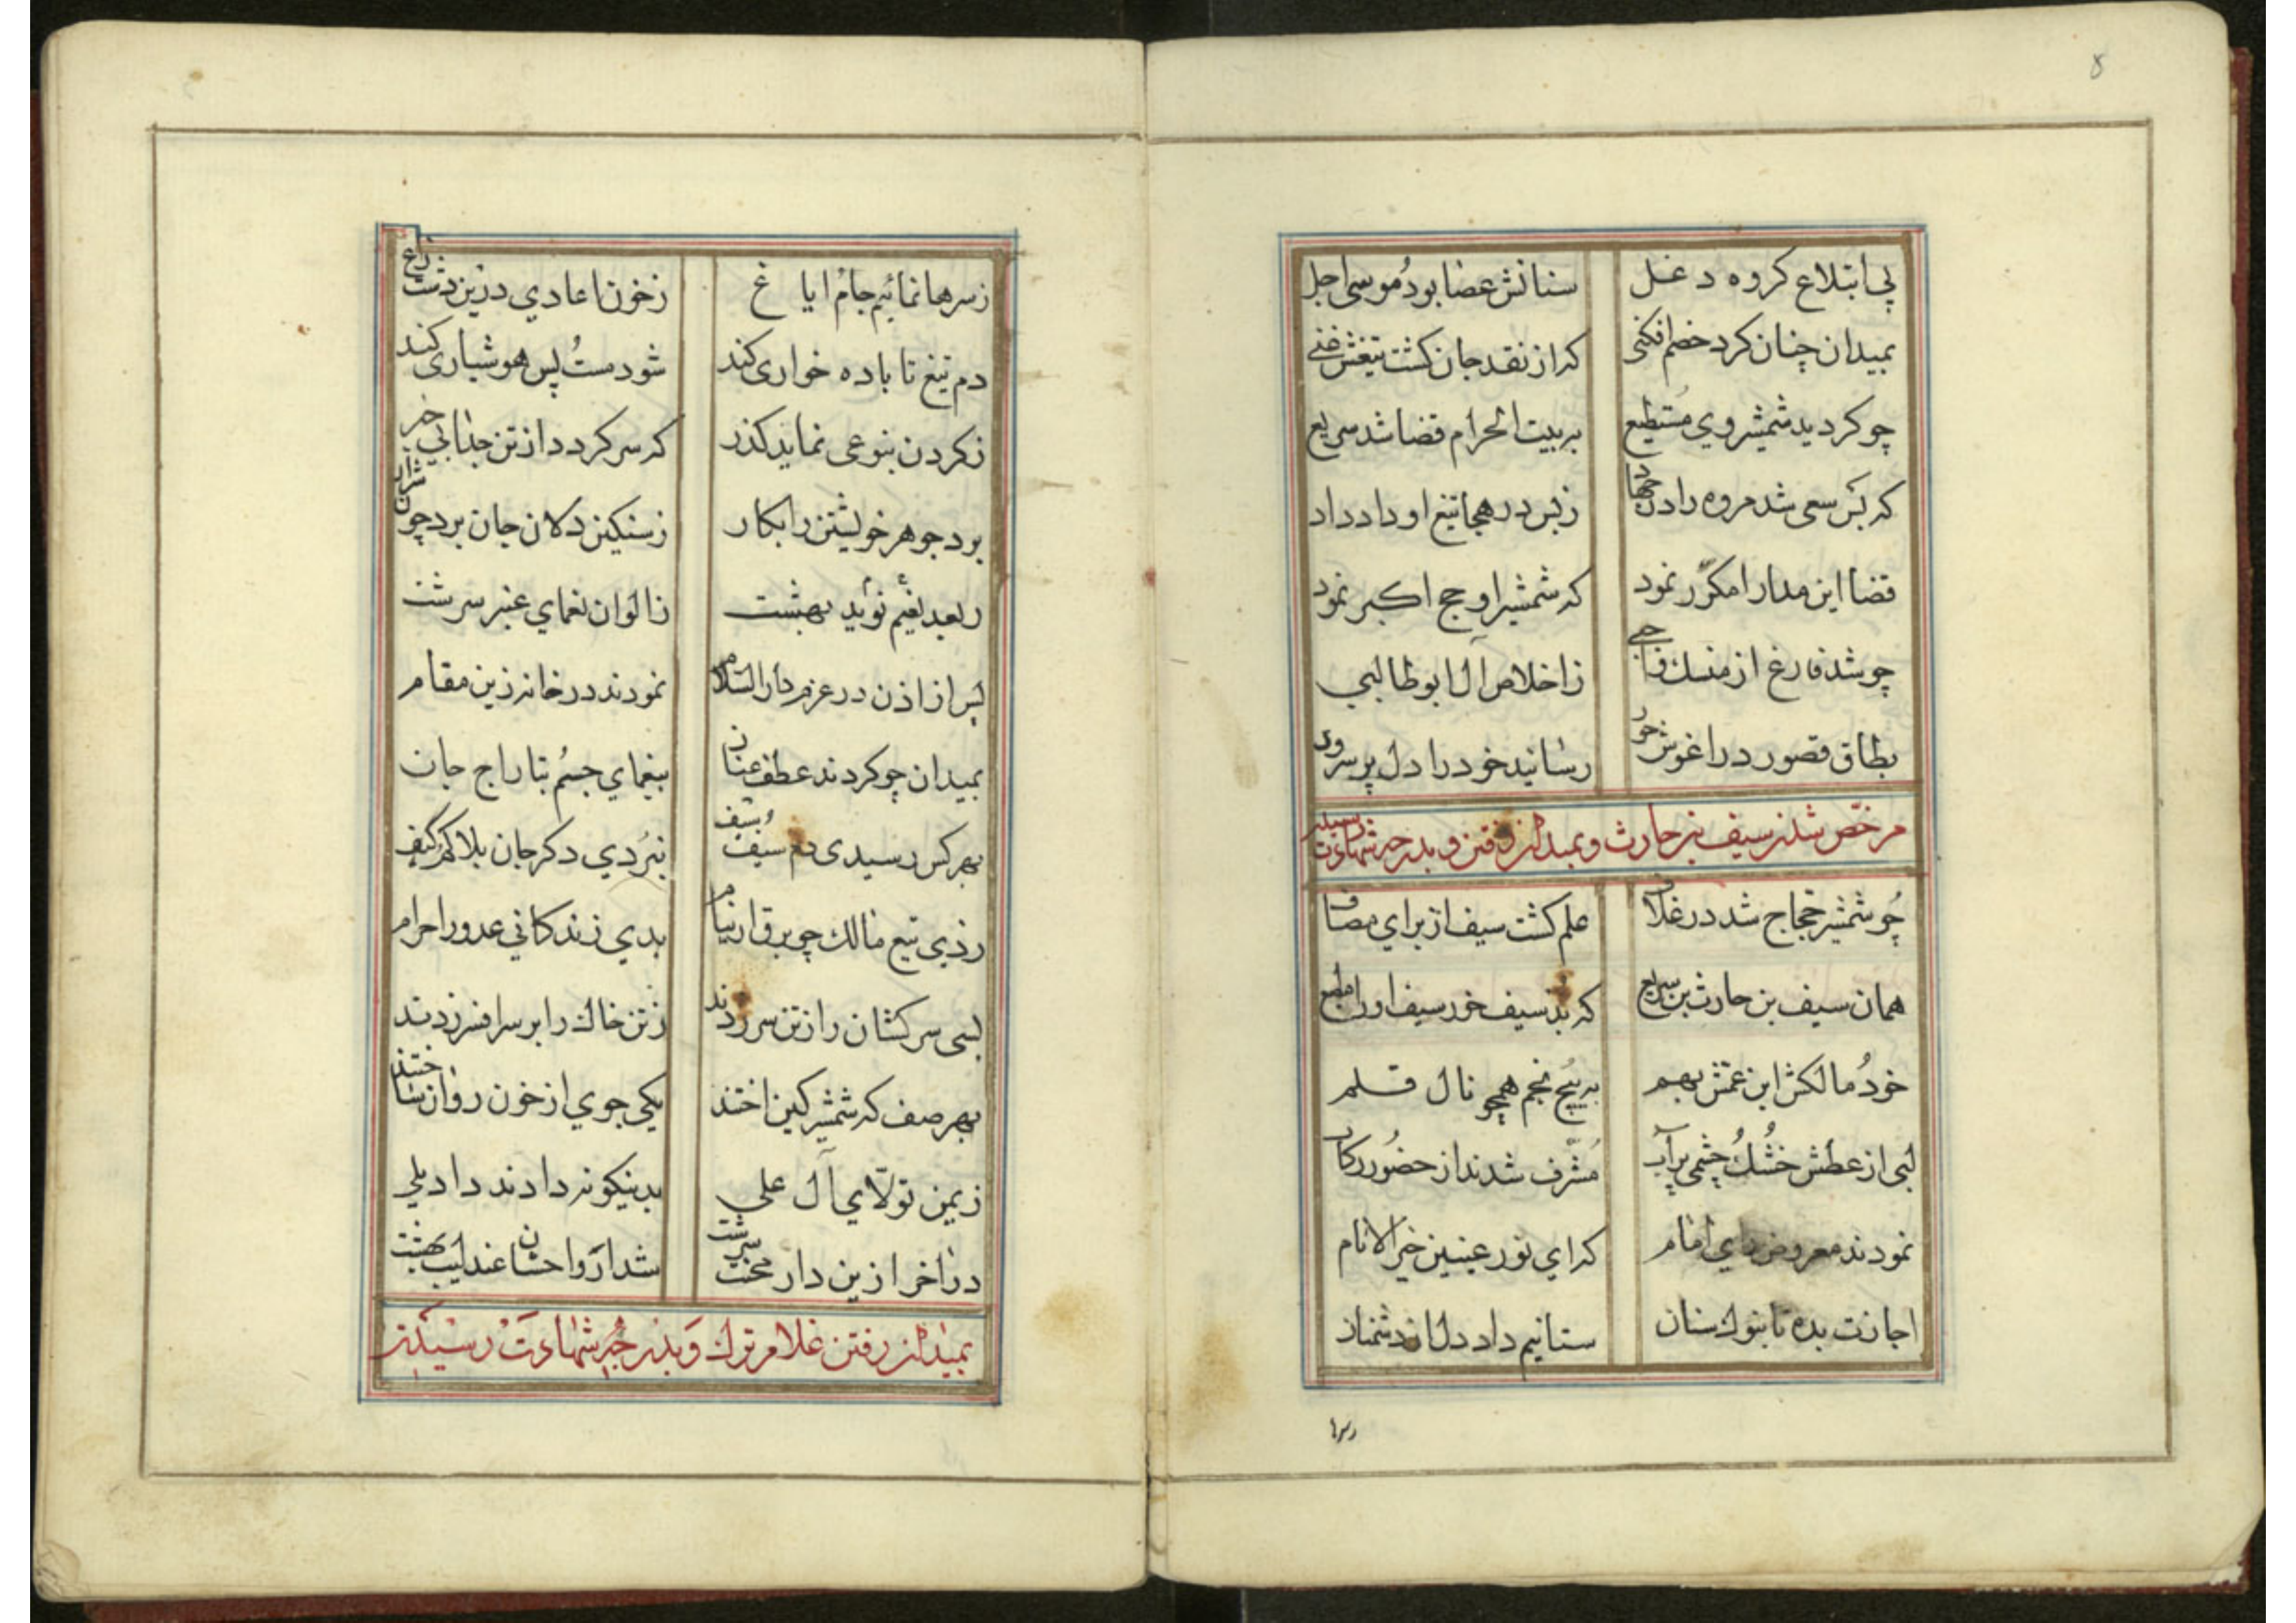 ۸
پی ابتلاع کروه دغل سنانش عصا بود موسی اجل
بمیدان چنان کرد خصم افکنی که از نقد جان کشت تیغش غنی
چو کردید شمشیر وی مستطیع به بیت الحرام قضا شد سریع
که بس سعی شد مروه را در زبس در هجا تیغ او داد داد
قضا این مدار امکرر نمود که شمشیر او حج اکبر نمود
چو شد فارغ از منسک زاخلاص آل ابوطالبی
بطاق قصور در اغوش حور رسانید خود را دل پر سرور
مرخص شدن سیف بن حارث و بمیدان رفتن و بدرجه شهادت رسیدن
چو شمشیر حجاج شد در غلاف علم کشت سیف از برای مصاف
همان سیف بن حارث بن سریع که بد سیف خور سیف او را مطیع
خود مالکش ابن عمش بهم به پیچ نجم همچو نال قلم
لبی از عطش خشک چشمی پر آب مشرف شدند از حضور رکاب
نمودند معروض امام که ای نور عینین خیر الانام
اجازت بده تا بنوک سنان ستانیم داد دل از دشمنان
زسر
زسرها نمائیم جام ایاغ زخون اعادی درین دشت زاغ
دم تیغ تا باده خواری کند شود مست پس هوشیاری کند
زکردن بنوعی نماید کذر که سر کردد از تن جدا بی خبر
برد جوهر خویشتن را بکار زسنکین دلان جان برد چون شرار
نوید بهشت زالوان نعمای عنبر سرشت
پس از اذن در عزم دار السلام نمودند در خانه زین مقام
بمیدان چو کردند عطف عنان بیغمای جسم بتاراج جان
بهر کس رسیدی دم سیف سیف نبردی دکر جان بلا کم و کیف
زدی تیغ مالک چو برق از نیام بدی زندکانی عدو را حرام
بسی سرکشان را زتن سر زدند زتن خاک را بر سر افسر زدند
بهر صف که شمشیر کین اختند یکی جوی از خون روان ساختند
زیمن تولای آل علی بدینکونه دادند داد یلی
در اخر ازین دار محنت سرشت شد ارواحشان عندلیب بهشت
بمیدان رفتن غلام ترک و بدرجه شهادت رسیدن